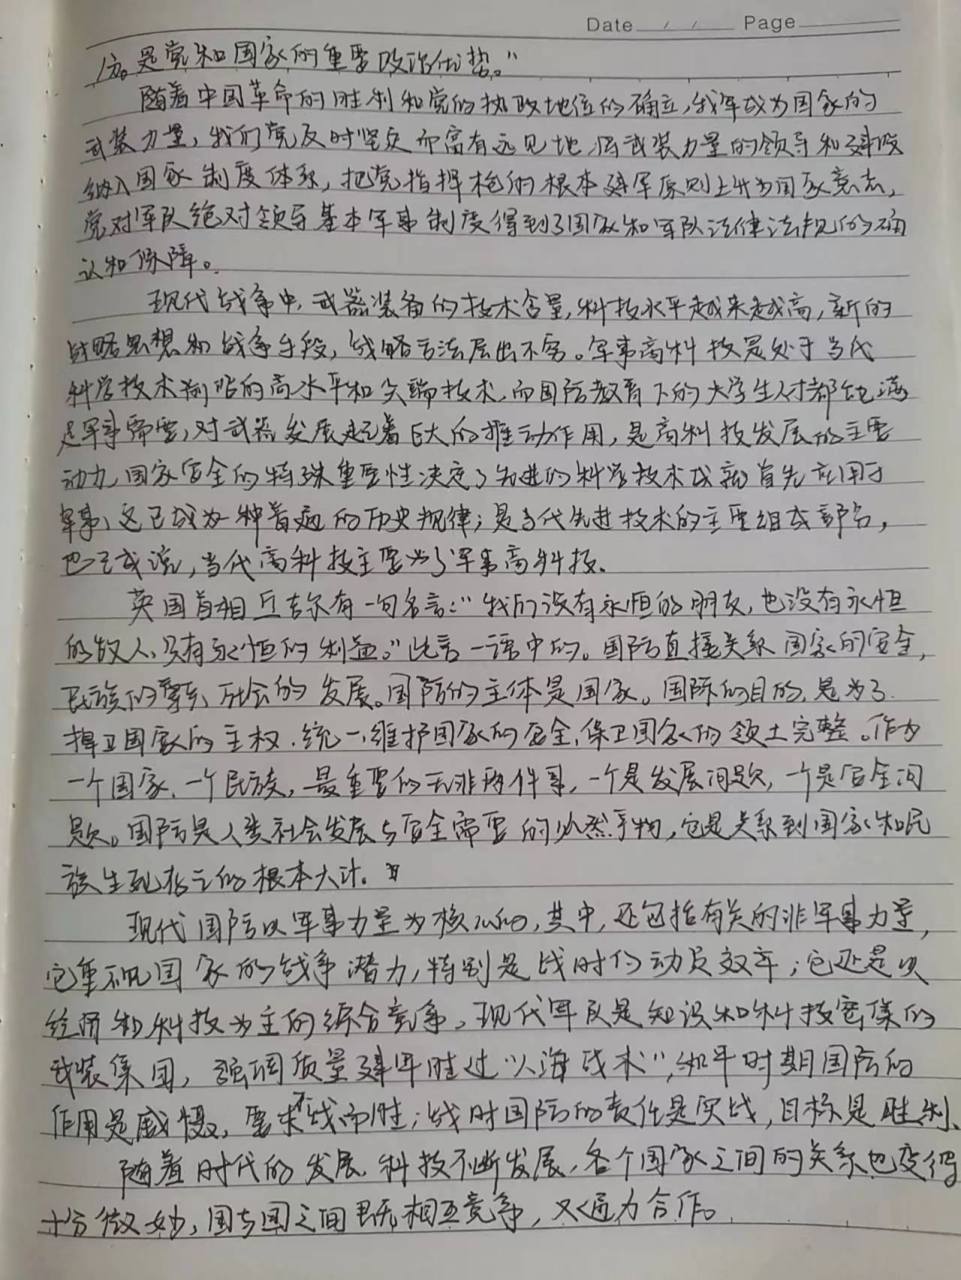 Date / / Page
是党和国家的重要政治优势。”
随着中国革命的胜利和党的执政地位的确立,我军成为国家的
武装力量,我们党及时坚定而富有远见地,将武装力量的领导和建设
纳入国家制度体系,把党指挥枪的根本建军原则上升为国家意志,
党对军队绝对领导基本军事制度得到了国家和军队法律法规的确
认和保障。
现代战争中,武器装备的技术含量,科技水平越来越高,新的
战略思想和战争手段,战略方法层出不穷。军事高科技是处于当代
科学技术前沿的高水平和尖端技术,而国防教育下的大学生人才都能满
足军事需要,对武器发展起着巨大的推动作用,是高科技发展的主要
动力,国家安全的特殊重要性决定了先进的科学技术成就首先应用于
军事,这已成为一种普遍的历史规律;是当代先进技术的主要组成部分,
也可或说,当代高科技主要为了军事高科技。
英国首相丘吉尔有一句名言:“我们没有永恒的朋友,也没有永恒
的敌人,只有永恒的利益。”此言一语中的。国防直接关系国家的安全,
民族的 社会的发展。国防的主体是国家。国际的目的,是为了
捍卫国家的主权、统一,维护国家的安全,保卫国家的领土完整。作为
一个国家、一个民族,最重要的无非两件事,一个是发展问题,一个是安全问
题。国防是人类社会发展与安全需要的必然产物,它是关系到国家和民
族生死存亡的根本大计。
现代国防以军事力量为核心的,其中,还包括有关的非军事力量,
它重视国家的战争潜力,特别是战时的动员效率;它还是以
经济和科技为主的综合竞争。现代军队是知识和科技密集的
武装集团,强调质量建军胜过“人海战术”,和平时期国防的
作用是威慑,要求不战而胜;战时国防的责任是实战,目标是胜利。
随着时代的发展,科技不断发展,各个国家之间的关系也变得
十分微妙,国与国之间既相互竞争,又通力合作。